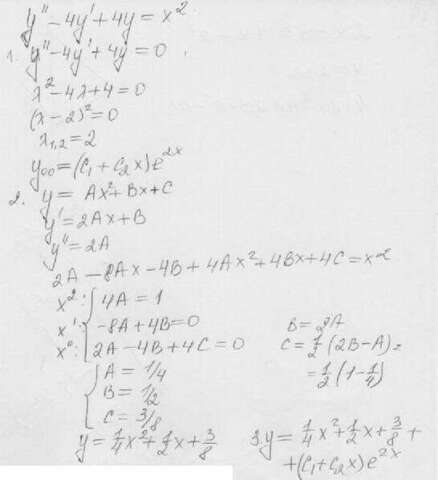 y'' - 4y' + 4y = x².
1. y'' - 4y' + 4y = 0.
x² - 4x + 4 = 0
(x - 2)² = 0
x₁,₂ = 2
y₀₀ = (C₁ + C₂x)e²ˣ
2. y = Ax² + Bx + C
y' = 2Ax + B
y'' = 2A
2A - 8Ax - 4B + 4Ax² + 4Bx + 4C = x²
x²: { 4A = 1
x¹: -8A + 4B = 0
x⁰: 2A - 4B + 4C = 0
B = 2A
C = 1/2 (2B - A) =
= 1/2 (1 - 1/4)
{ A = 1/4
B = 1/2
C = 3/8
y = 1/4 x² + 1/2 x + 3/8
3. y = 1/4 x² + 1/2 x + 3/8 +
+ (C₁ + C₂x)e²ˣ